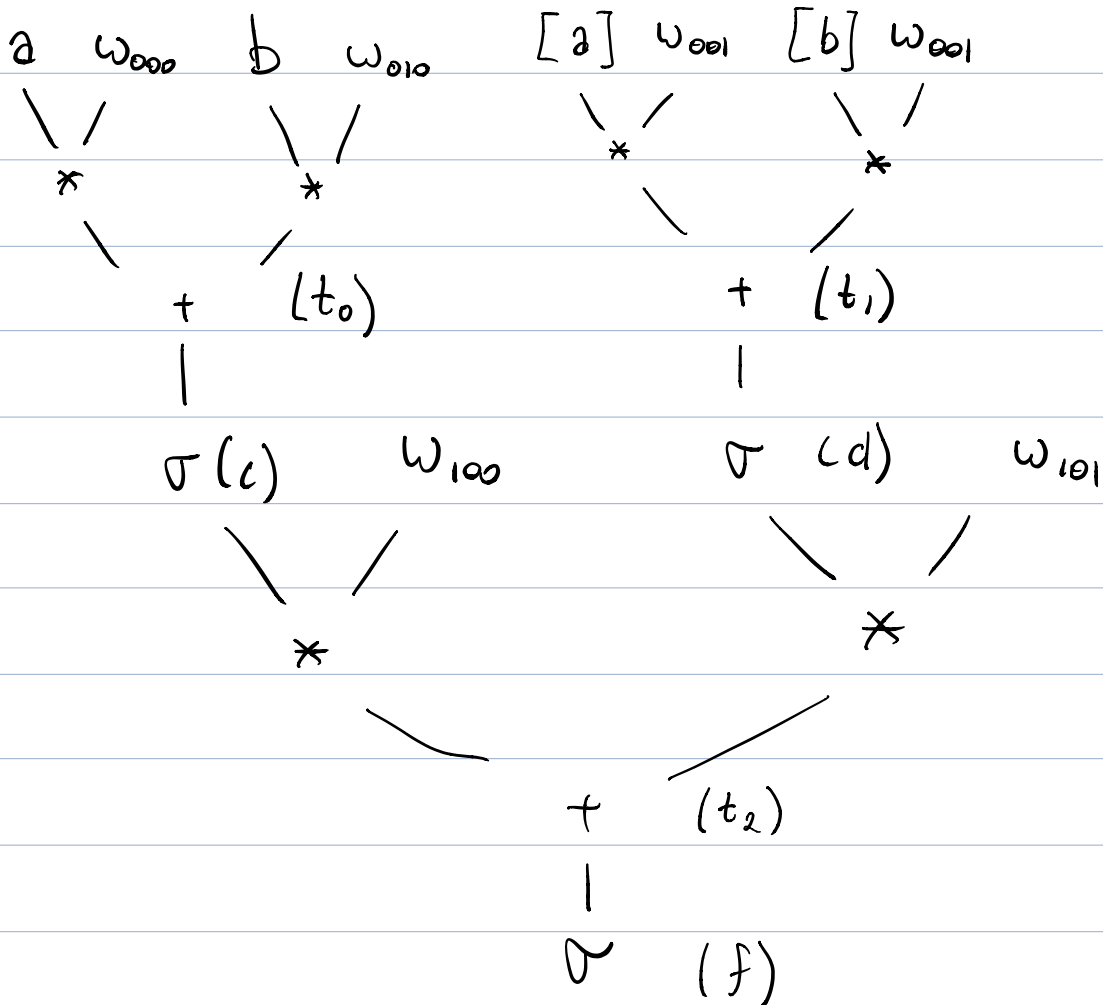 a ω₀₀₀ b ω₀₁₀ [a] ω₀₀₁ [b] ω₀₀₁
* * * *
+ (t₀) + (t₁)
σ (c) ω₁₀₀ σ (d) ω₁₀₁
* *
+ (t₂)
σ (f)